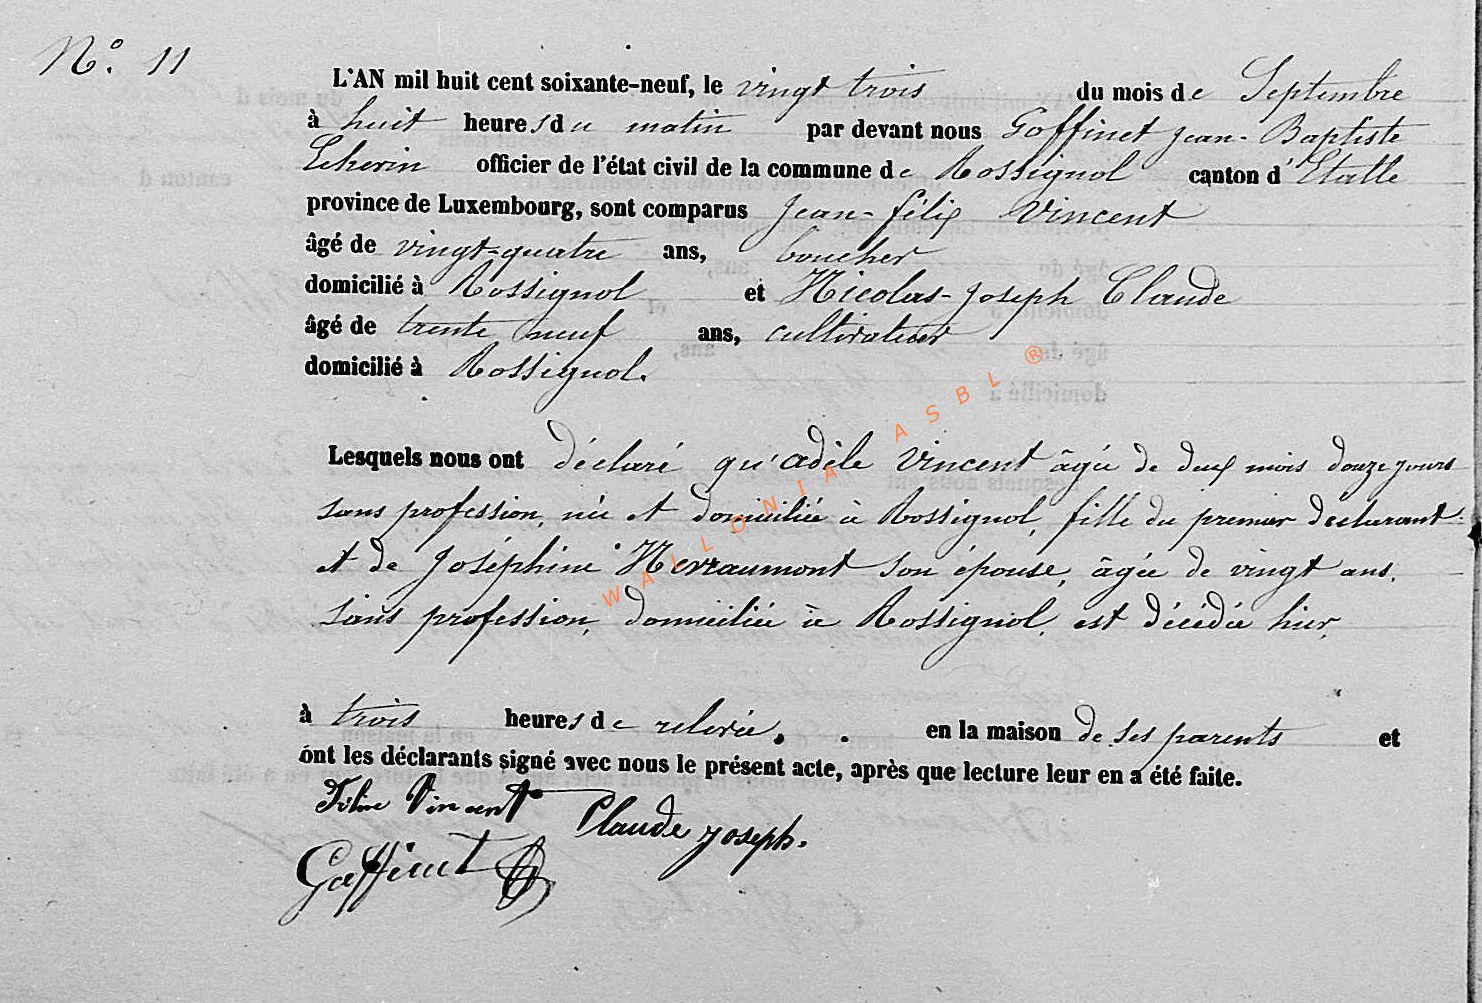 N.o 11
L'AN mil huit cent soixante-neuf, le vingt trois du mois de Septembre
à huit heures du matin par devant nous Goffinet Jean-Baptiste
officier de l'état civil de la commune de Rossignol canton d'Etalle
province de Luxembourg, sont comparus Jean-félix Vincent
âgé de vingt-quatre ans, boucher
domicilié à Rossignol et Nicolas-Joseph Claude
âgé de trente neuf ans, cultivateur
domicilié à Rossignol.
Lesquels nous ont déclaré qu'adèle Vincent âgée de deux mois douze jours
sans profession, née et domiciliée à Rossignol, fille du premier déclarant
et de Joséphine Henraumont son épouse, âgée de vingt ans,
sans profession, domiciliée à Rossignol, est décédée hier,
à trois heures de relevée. en la maison de ses parents et
ont les déclarants signé avec nous le présent acte, après que lecture leur en a été faite.
Vincent Claude Joseph.
Goffinet
WALLONIA ASBL ®